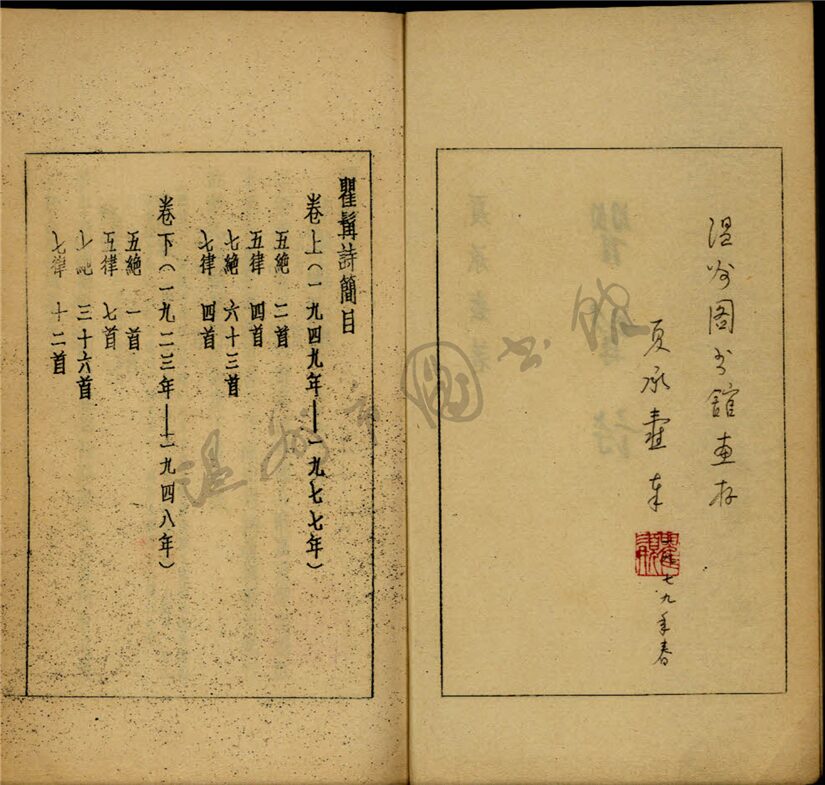 温州图书館惠存
夏承燾奉
瞿髯
七九年春
瞿髯詩簡目
卷上（一九四九年——一九七七年）
五絶 二首
五律 四首
七絶 六十三首
七律 四首
卷下（一九二三年——一九四八年）
五絶 一首
五律 七首
七絶 三十六首
七律 十二首
温州市图书馆